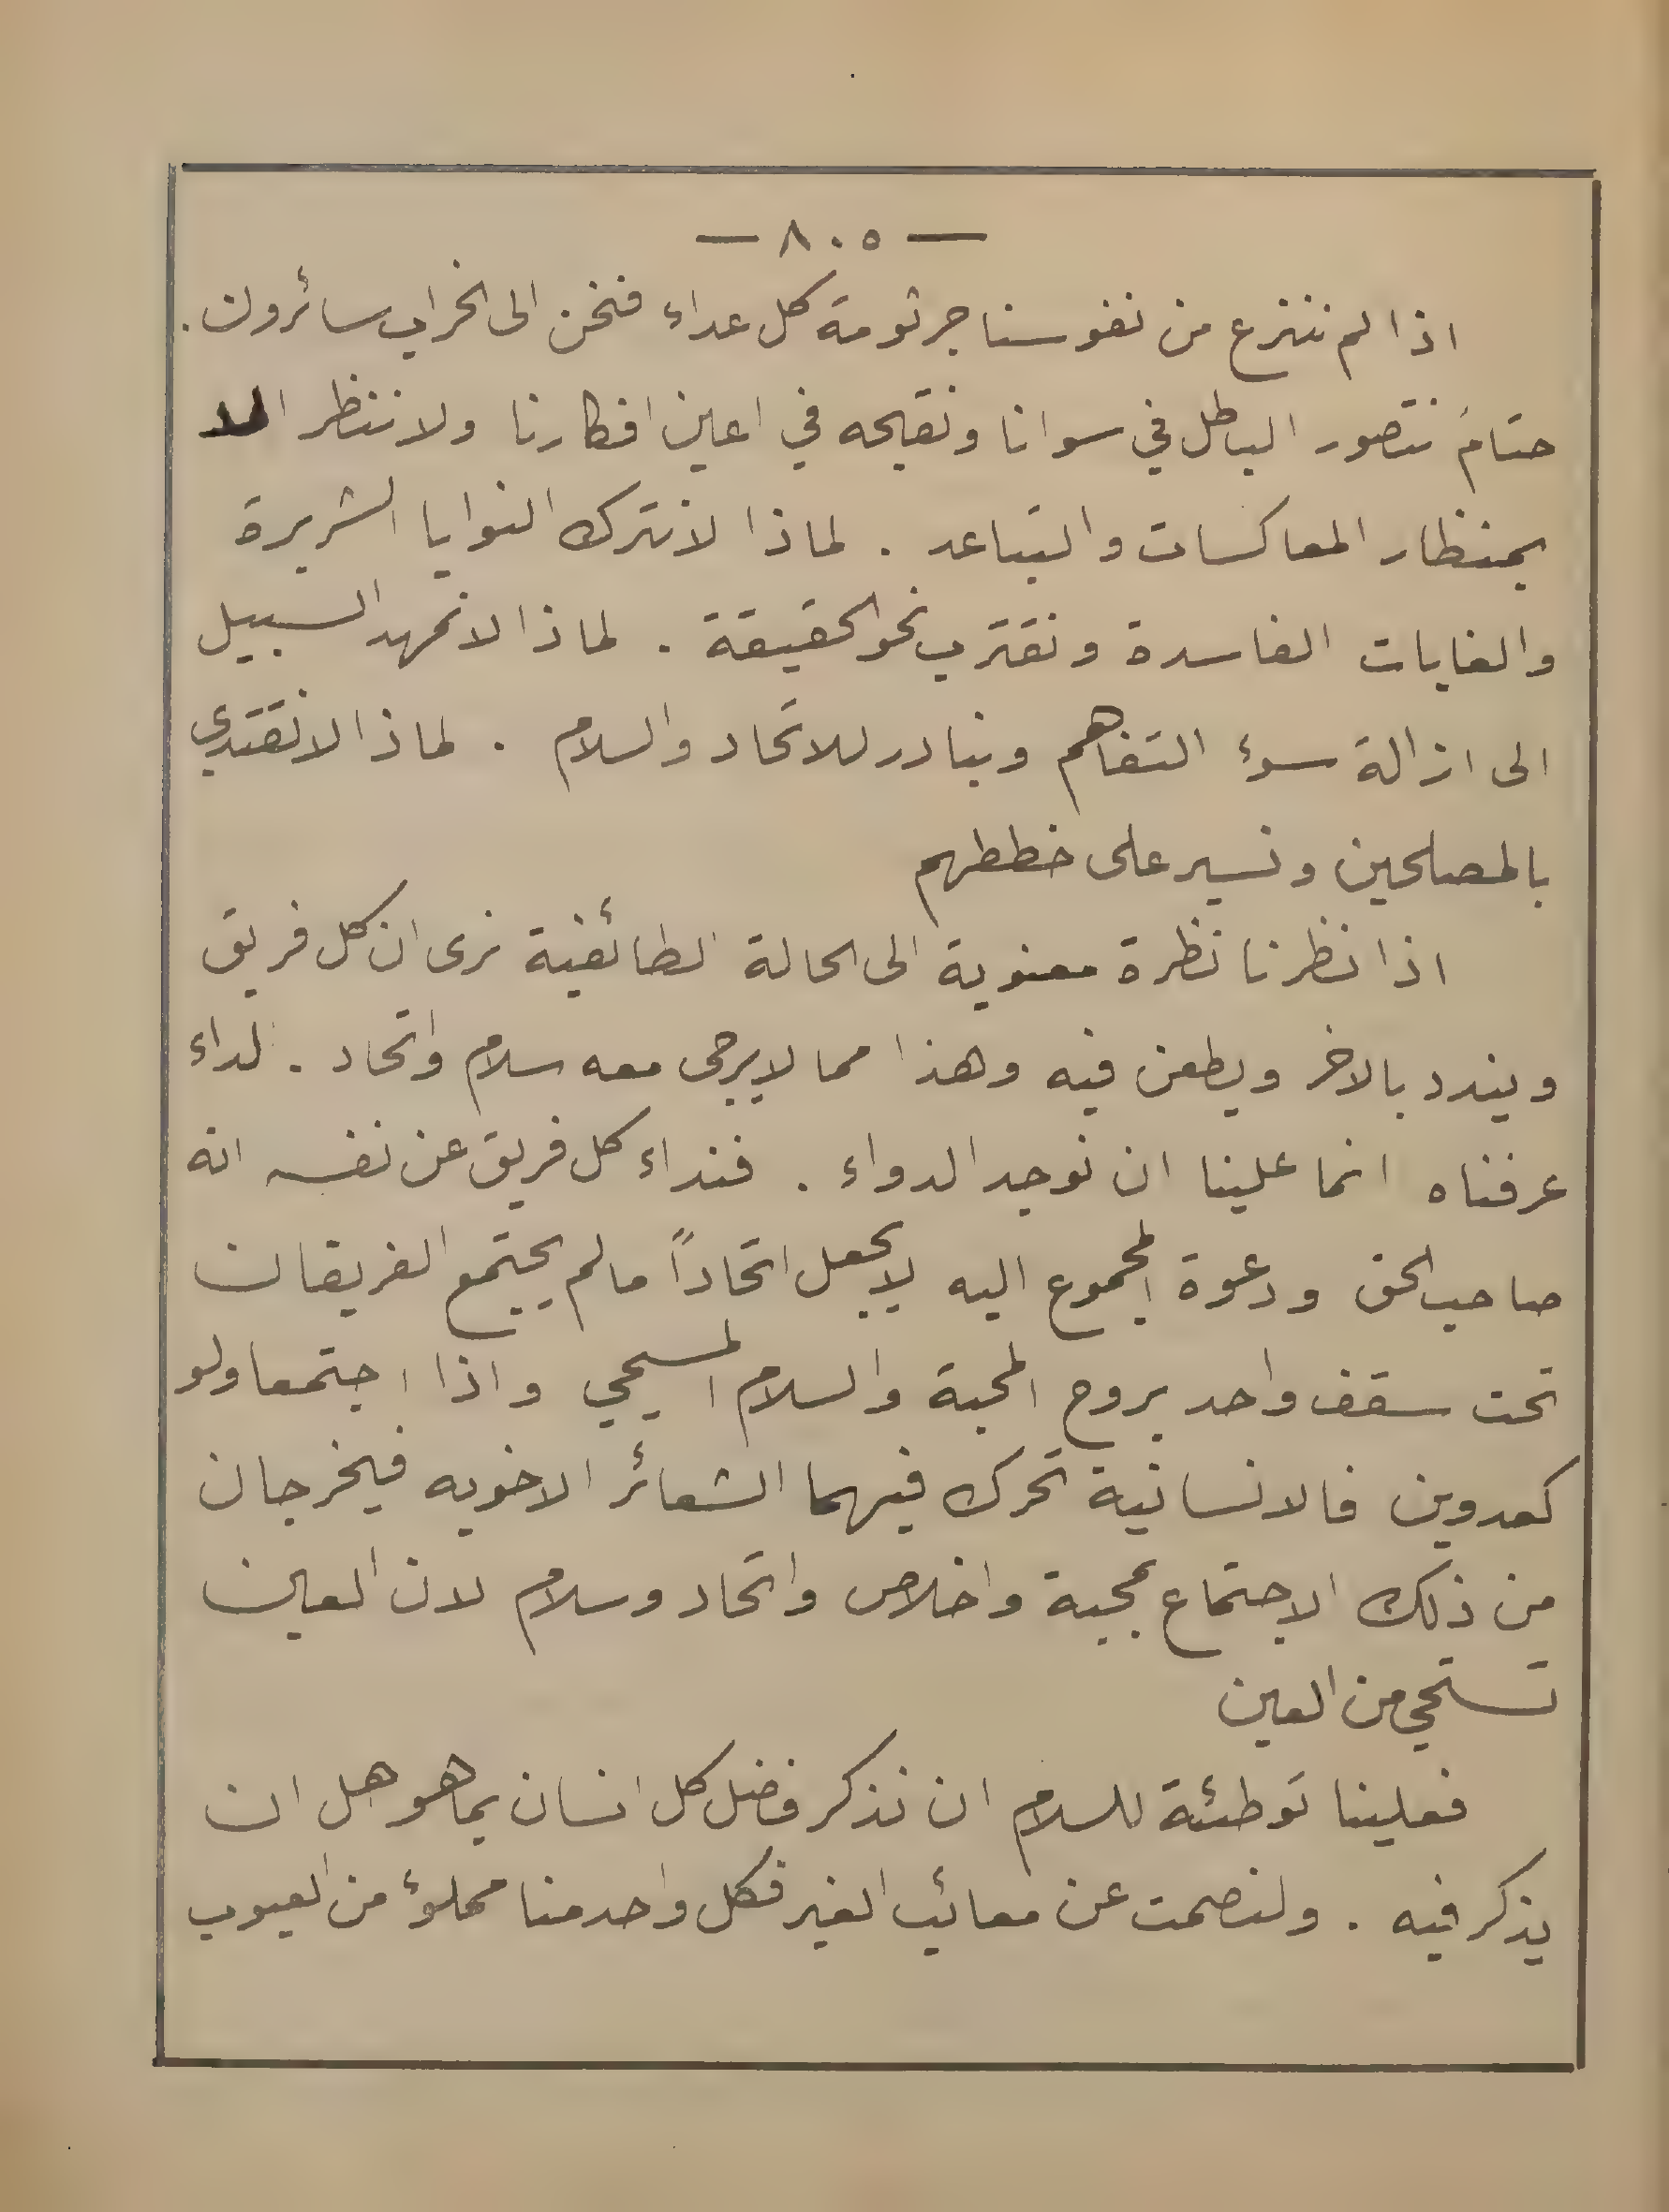 — ٨٠٥ —
اذا لم ننتزع من نفوسنا جرثومة كل عداء فنحن الى الخراب سائرون .
حتامَ نتصور الباطل في سوانا ونقيحه في اعين افكارنا ولا ننظر الا
بمنظار المعاكسات والتباعد . لماذا لا نترك النوايا الشريرة
والغايات الفاسدة ونقترب نحو الحقيقة . لماذا لا نمهد السبيل
الى ازالة سوء التفاهم ونبادر للاتحاد والسلام . لماذا لا نقتدي
بالمصلحين ونسير على خططهم
اذا نظرنا نظرة معنوية الى الحالة الطائفية نرى ان كل فريق
ويندد بالاخر ويطعن فيه وهذا مما لا يرجى معه سلام واتحاد . الداء
عرفناه انما علينا ان نوجد الدواء . فنداء كل فريق عن نفسه انه
صاحب الحق ودعوة المجموع اليه لا يجعل اتحاداً ما لم يجتمع الفريقان
تحت سقف واحد بروح المحبة والسلام المسيحي واذا اجتمعا ولو
كعدوين فالانسانية تحرك فيهما الشعائر الاخويه فيخرجان
من ذلك الاجتماع بمحبة واخلاص واتحاد وسلام لان العين
تستحي من العين
فعلينا توطئة للسلام ان نذكر فضل كل انسان بما هو هل ان
يذكر فيه . ولنصمت عن معائب الغير فكل واحد منا مملوء من العيوب